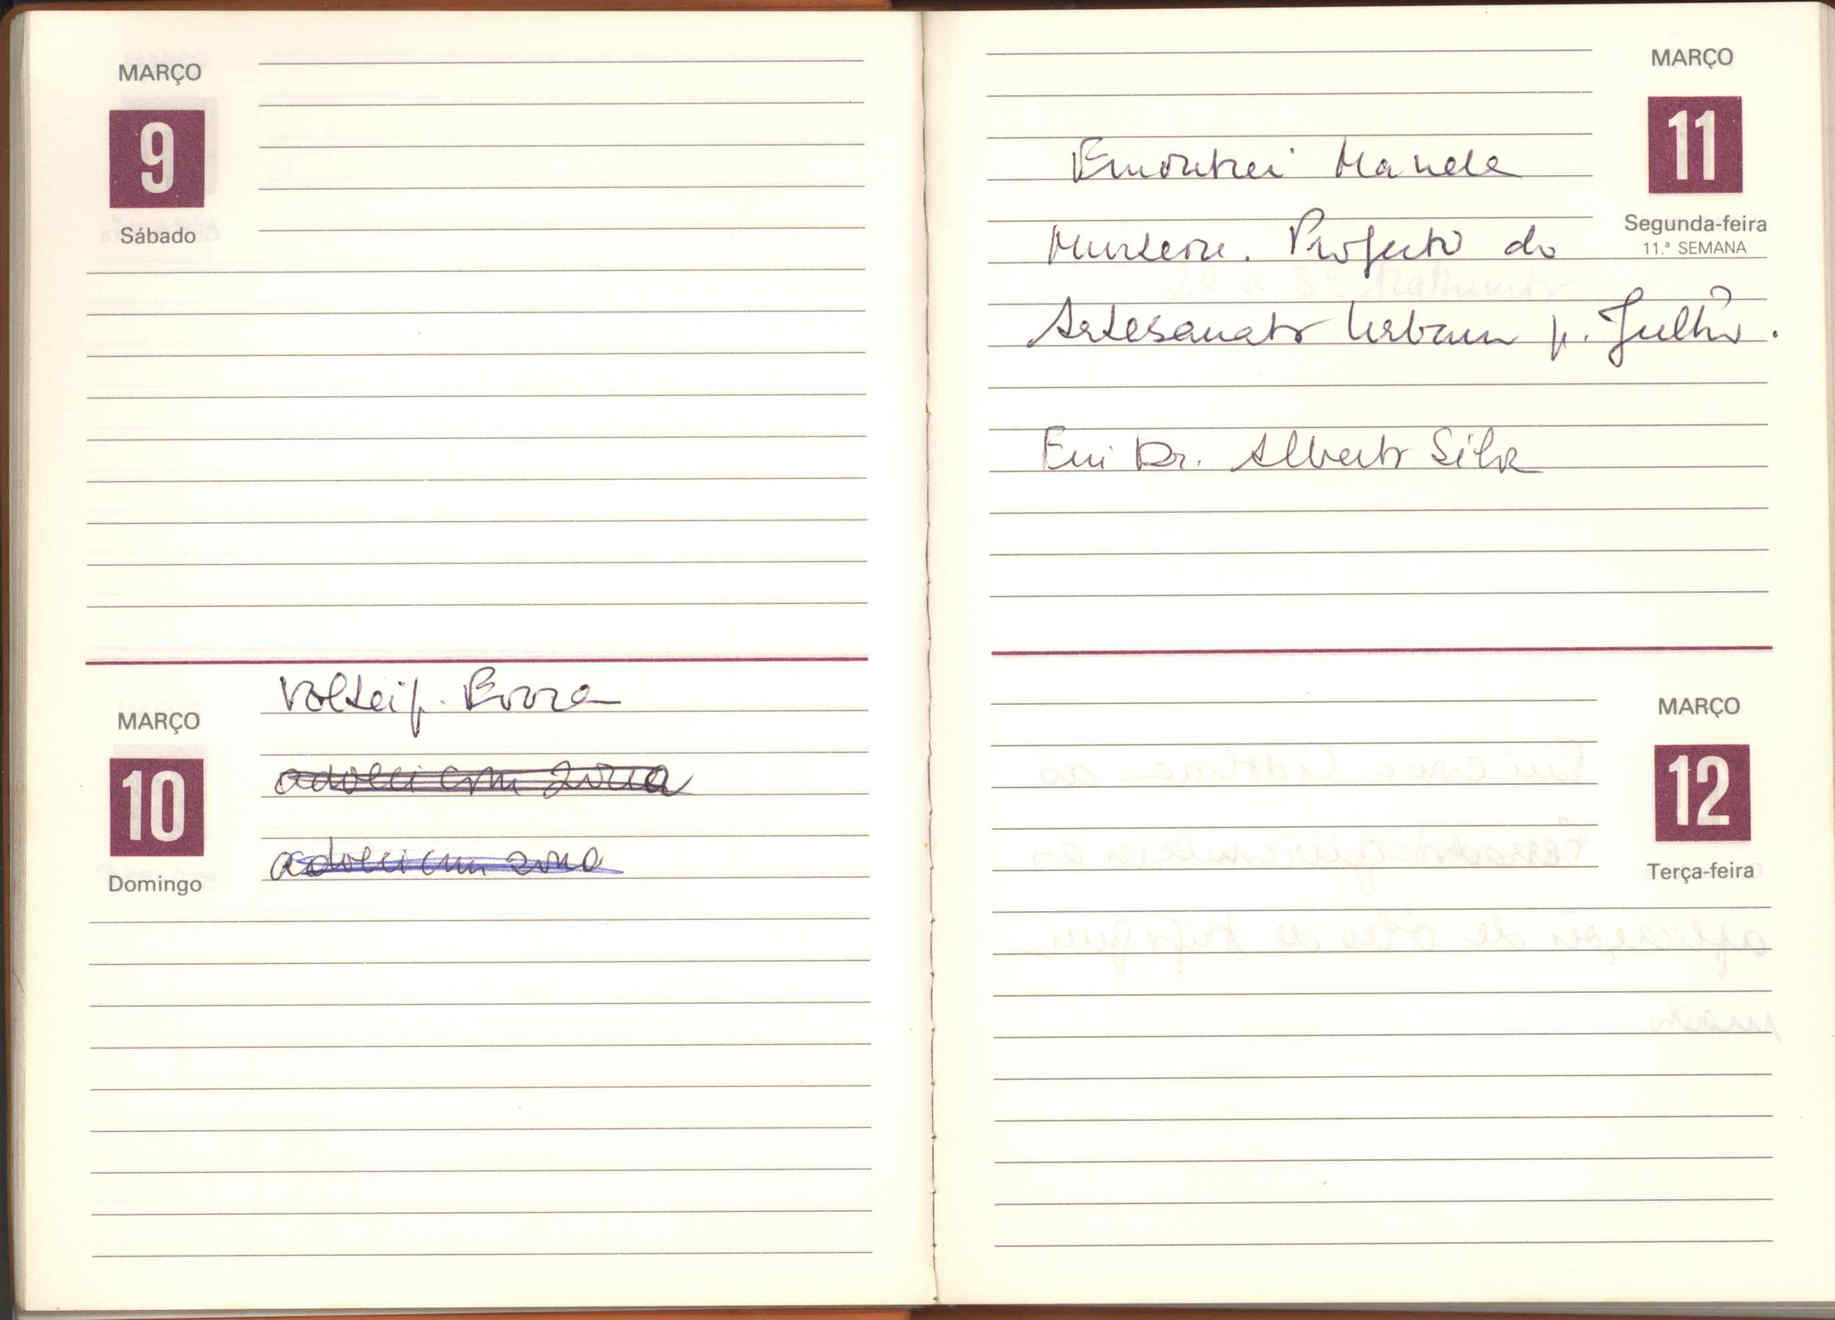 MARÇO
9
Sábado
MARÇO
10
Domingo
Voltei p. Evora
adoeci com zona
adoeci com zona
MARÇO
11
Segunda-feira
11.ª SEMANA
Encontrei
Projecto do
Artesanato Urbano p. Julho.
Dr. Alberto Silva
MARÇO
12
Terça-feira